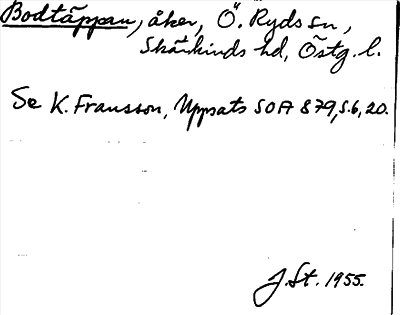 Bodtäppan, åker, Ö. Ryds sn,
Skärkinds hd, Östg. l.
Se K. Fransson, Uppsats SOA 879, s. 6, 20.
J. St. 1955.